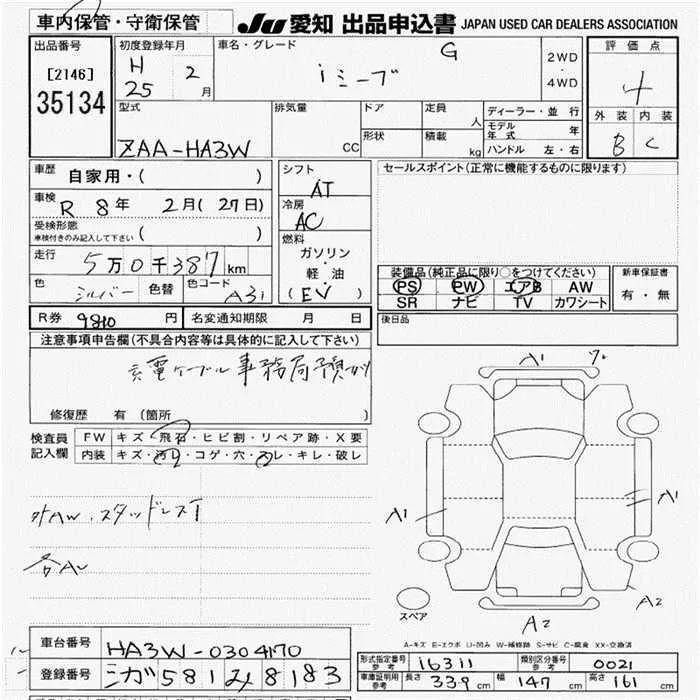 車内保管・守衛保管
JU 愛知 出品申込書 JAPAN USED CAR DEALERS ASSOCIATION
出品番号
[2146]
35134
初度登録年月
H 25 2月
車名・グレード
G
iミーブ
2WD
・
4WD
評価点
4
外装 内装
B C
型式
ZAA-HA3W
排気量
CC
ドア
形状
定員
人
積載
kg
ディーラー・並行
モデル年式 年
ハンドル 左・右
車歴
自家用・( )
車検
R 8年 2月(27日)
受検形態
車検付きのみ記入して下さい ( )
走行
5万0千387km
色
シルバー
色替
色コード
A31
シフト
AT
冷房
AC
燃料
ガソリン
・
軽油
(EV)
セールスポイント(正常に機能するものに限ります)
装備品(純正品に限り○をつけてください)
PS PW エアB AW
SR ナビ TV カワシート
新車保証書
有・無
R券 9810円
名変通知期限 月 日
後日品
注意事項申告欄(不具合内容等は具体的に記入して下さい)
充電ケーブル 事務局預かり
修復歴 有 (箇所 )
検査員
記入欄
FW キズ・飛石・ヒビ割・リペア跡・X要
内装 キズ・汚れ・コゲ・穴・スレ・キレ・破レ
外AW.スタッドレスT
各AU
A1
A1
A1
A2
A2
スペア
A-キズ E-エクボ U-凹み W-補修跡 S-サビ C-腐食 XX-交換済
車台番号
HA3W-0304170
登録番号
シガ581 み 8183
形式指定番号 参考
16311
類別区分番号 参考
0021
車庫証明用 参考
長さ 339cm 幅 147cm 高さ 161cm